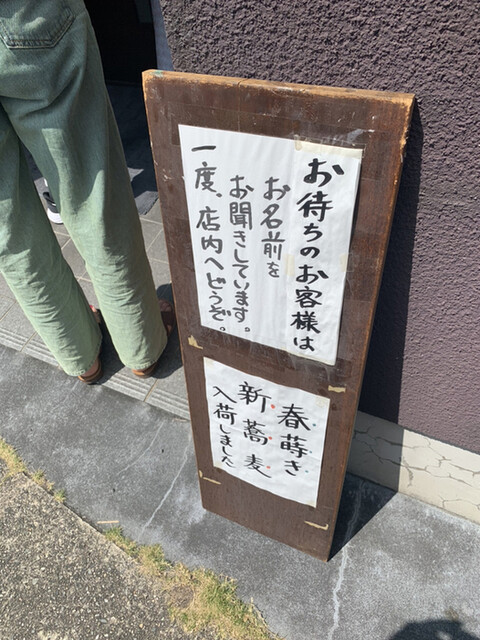 お待ちのお客様は
お名前を
お聞きしています。
一度、店内へどうぞ。
春蒔き
新蕎麦
入荷しました